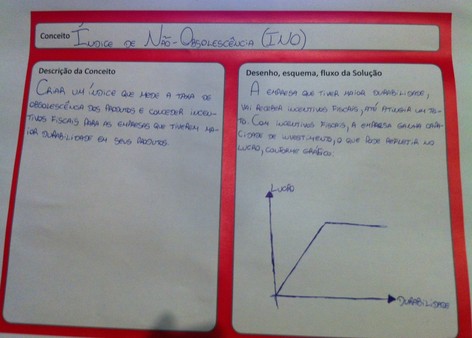 Conceito ÍNDICE DE NÃO-OBSOLESCÊNCIA (INO)
Descrição da Conceito
CRIAR UM ÍNDICE QUE MEDE A TAXA DE
OBSOLESCÊNCIA DOS PRODUTOS E CONCEDER INCEN-
TIVOS FISCAIS PARA AS EMPRESAS QUE TIVEREM MA-
IOR DURABILIDADE EM SEUS PRODUTOS.
Desenho, esquema, fluxo da Solução
A EMPRESA QUE TIVER MAIOR DURABILIDADE,
VAI RECEBER INCENTIVOS FISCAIS, ATÉ ATINGIR UM TE-
TO. COM INCENTIVOS FISCAIS, A EMPRESA GANHA CAPA-
CIDADE DE INVESTIMENTO, O QUE PODE REFLETIR NO
LUCRO, CONFORME GRÁFICO.
LUCRO
DURABILIDADE